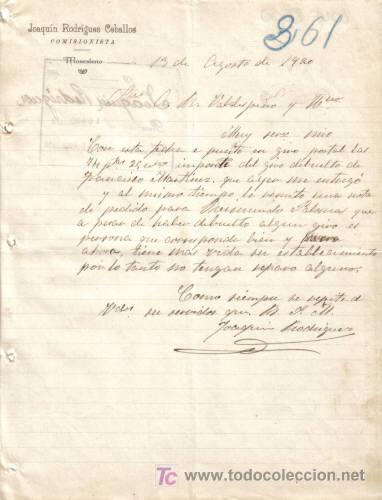 Joaquín Rodríguez Ceballos
COMISIONISTA
Moscatero
361
13 de Agosto de 1920
A. R. Valdespino y Hno
Muy sres mio
Con esta fecha e puesto en giro postal las
74 pts 25 importe del giro debuelto de
Francisco Martinez, que alyer me entregó
y al mismo tiempo le remito una nota
de pedido para Raimundo que
a pesar de haber debuelto algun giro es
persona que corresponde bien y
ahora, tiene mas vida su establecimiento
por lo tanto no tengan reparo alguno.
Como siempre se repite de
Vds su servidor q. B. S. M.
Joaquin Rodriguez
TC www.todocoleccion.net